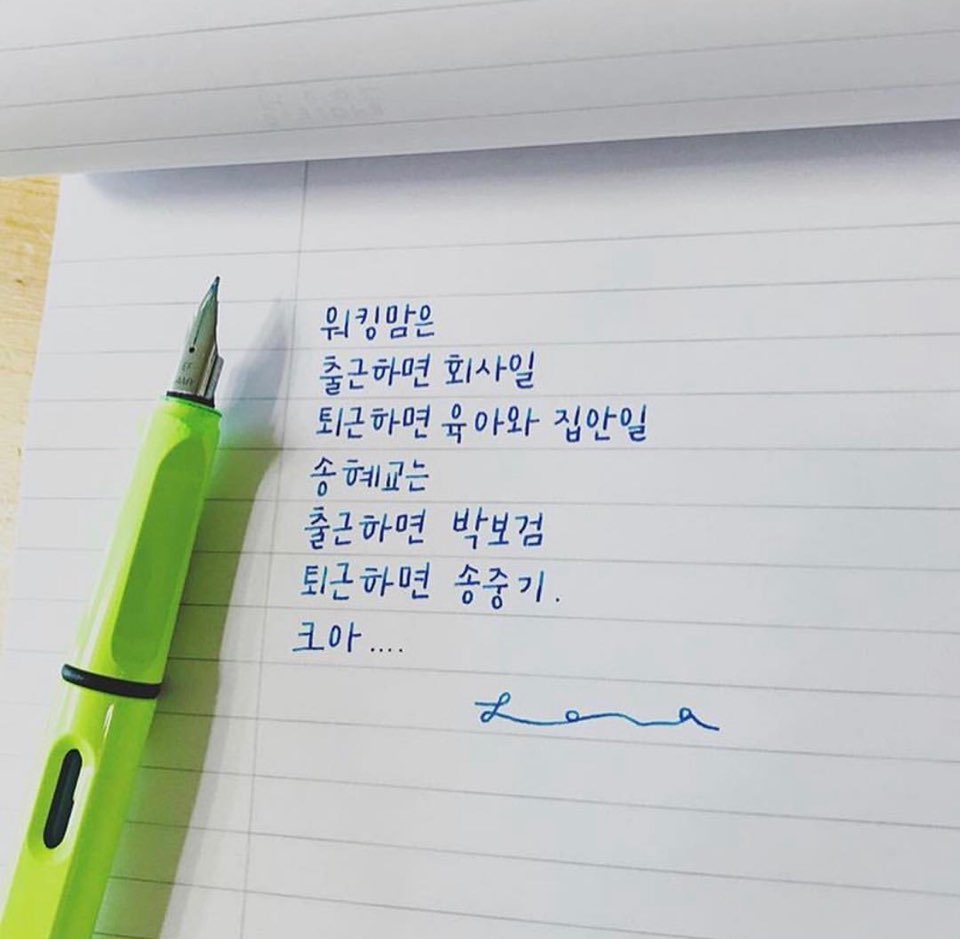 워킹맘은
출근하면 회사일
퇴근하면 육아와 집안일
송혜교는
출근하면 박보검
퇴근하면 송중기.
크아....
Lona
EF